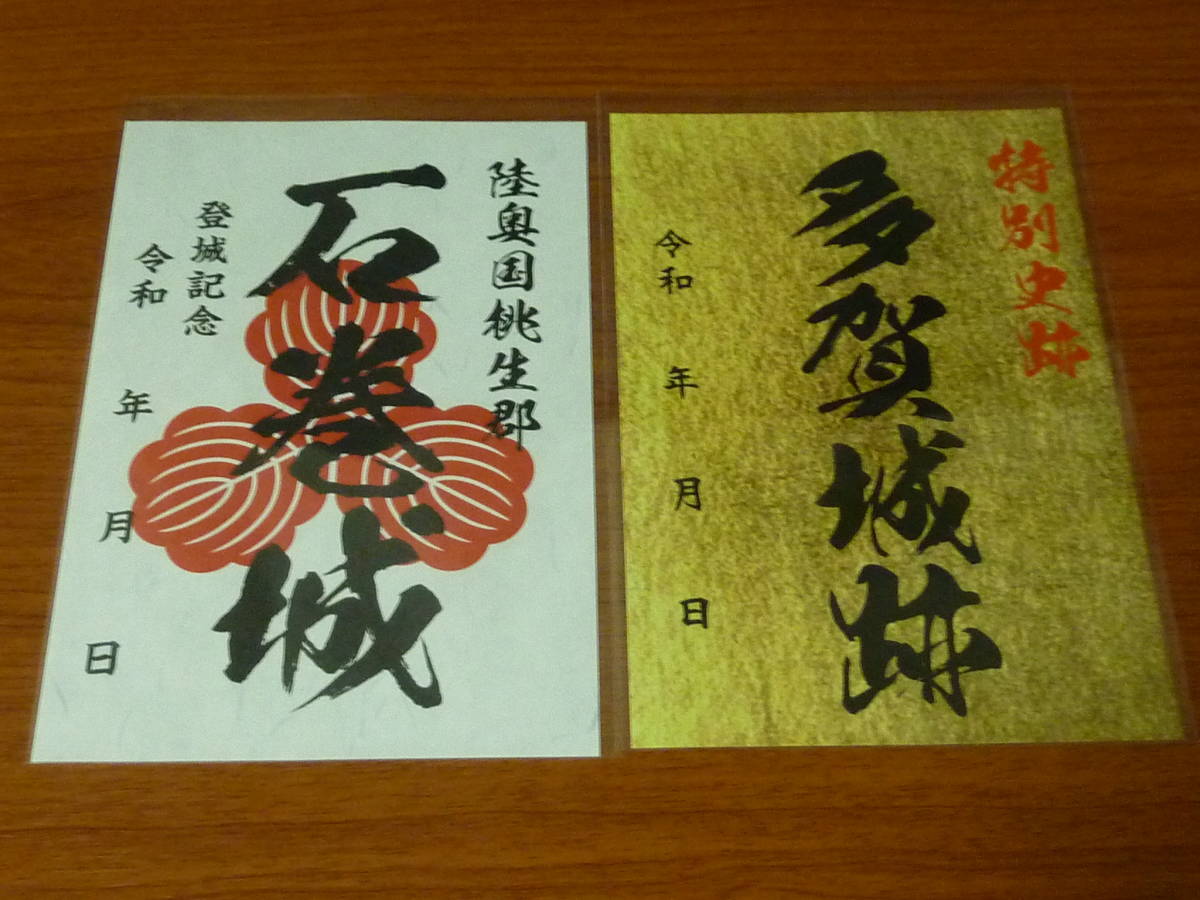 陸奥国桃生郡
石巻城
登城記念
令和 年 月 日
特別史跡
多賀城跡
令和 年 月 日